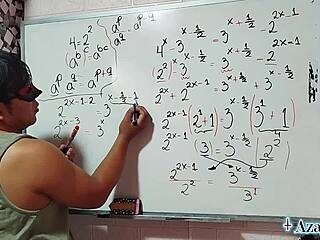 a^p / a^q = a^{p-q}
4 = 2^2
(a^b)^c = a^{bc}
a^p a^q = a^{p+q}
2^{2x-1-2} = 3^{x-½-1}
2^{2x-3} = 3^x
4^x - 3^{x-½} = 3^{x+½} - 2^{2x-1}
(2^2)^x - 3^{x-½} = 3^{x+½} - 2^{2x-1}
2^{2x} + 2^{2x-1} = 3^{x+½} + 3^{x-½}
2^{2x-1} (2^1 + 1) = 3^{x-½} (3^1 + 1)
2^{2x-1} (3) = 3^{x-½} (2^2)
2^{2x-1} / 2^2 = 3^{x-½} / 3^1
+ Aza